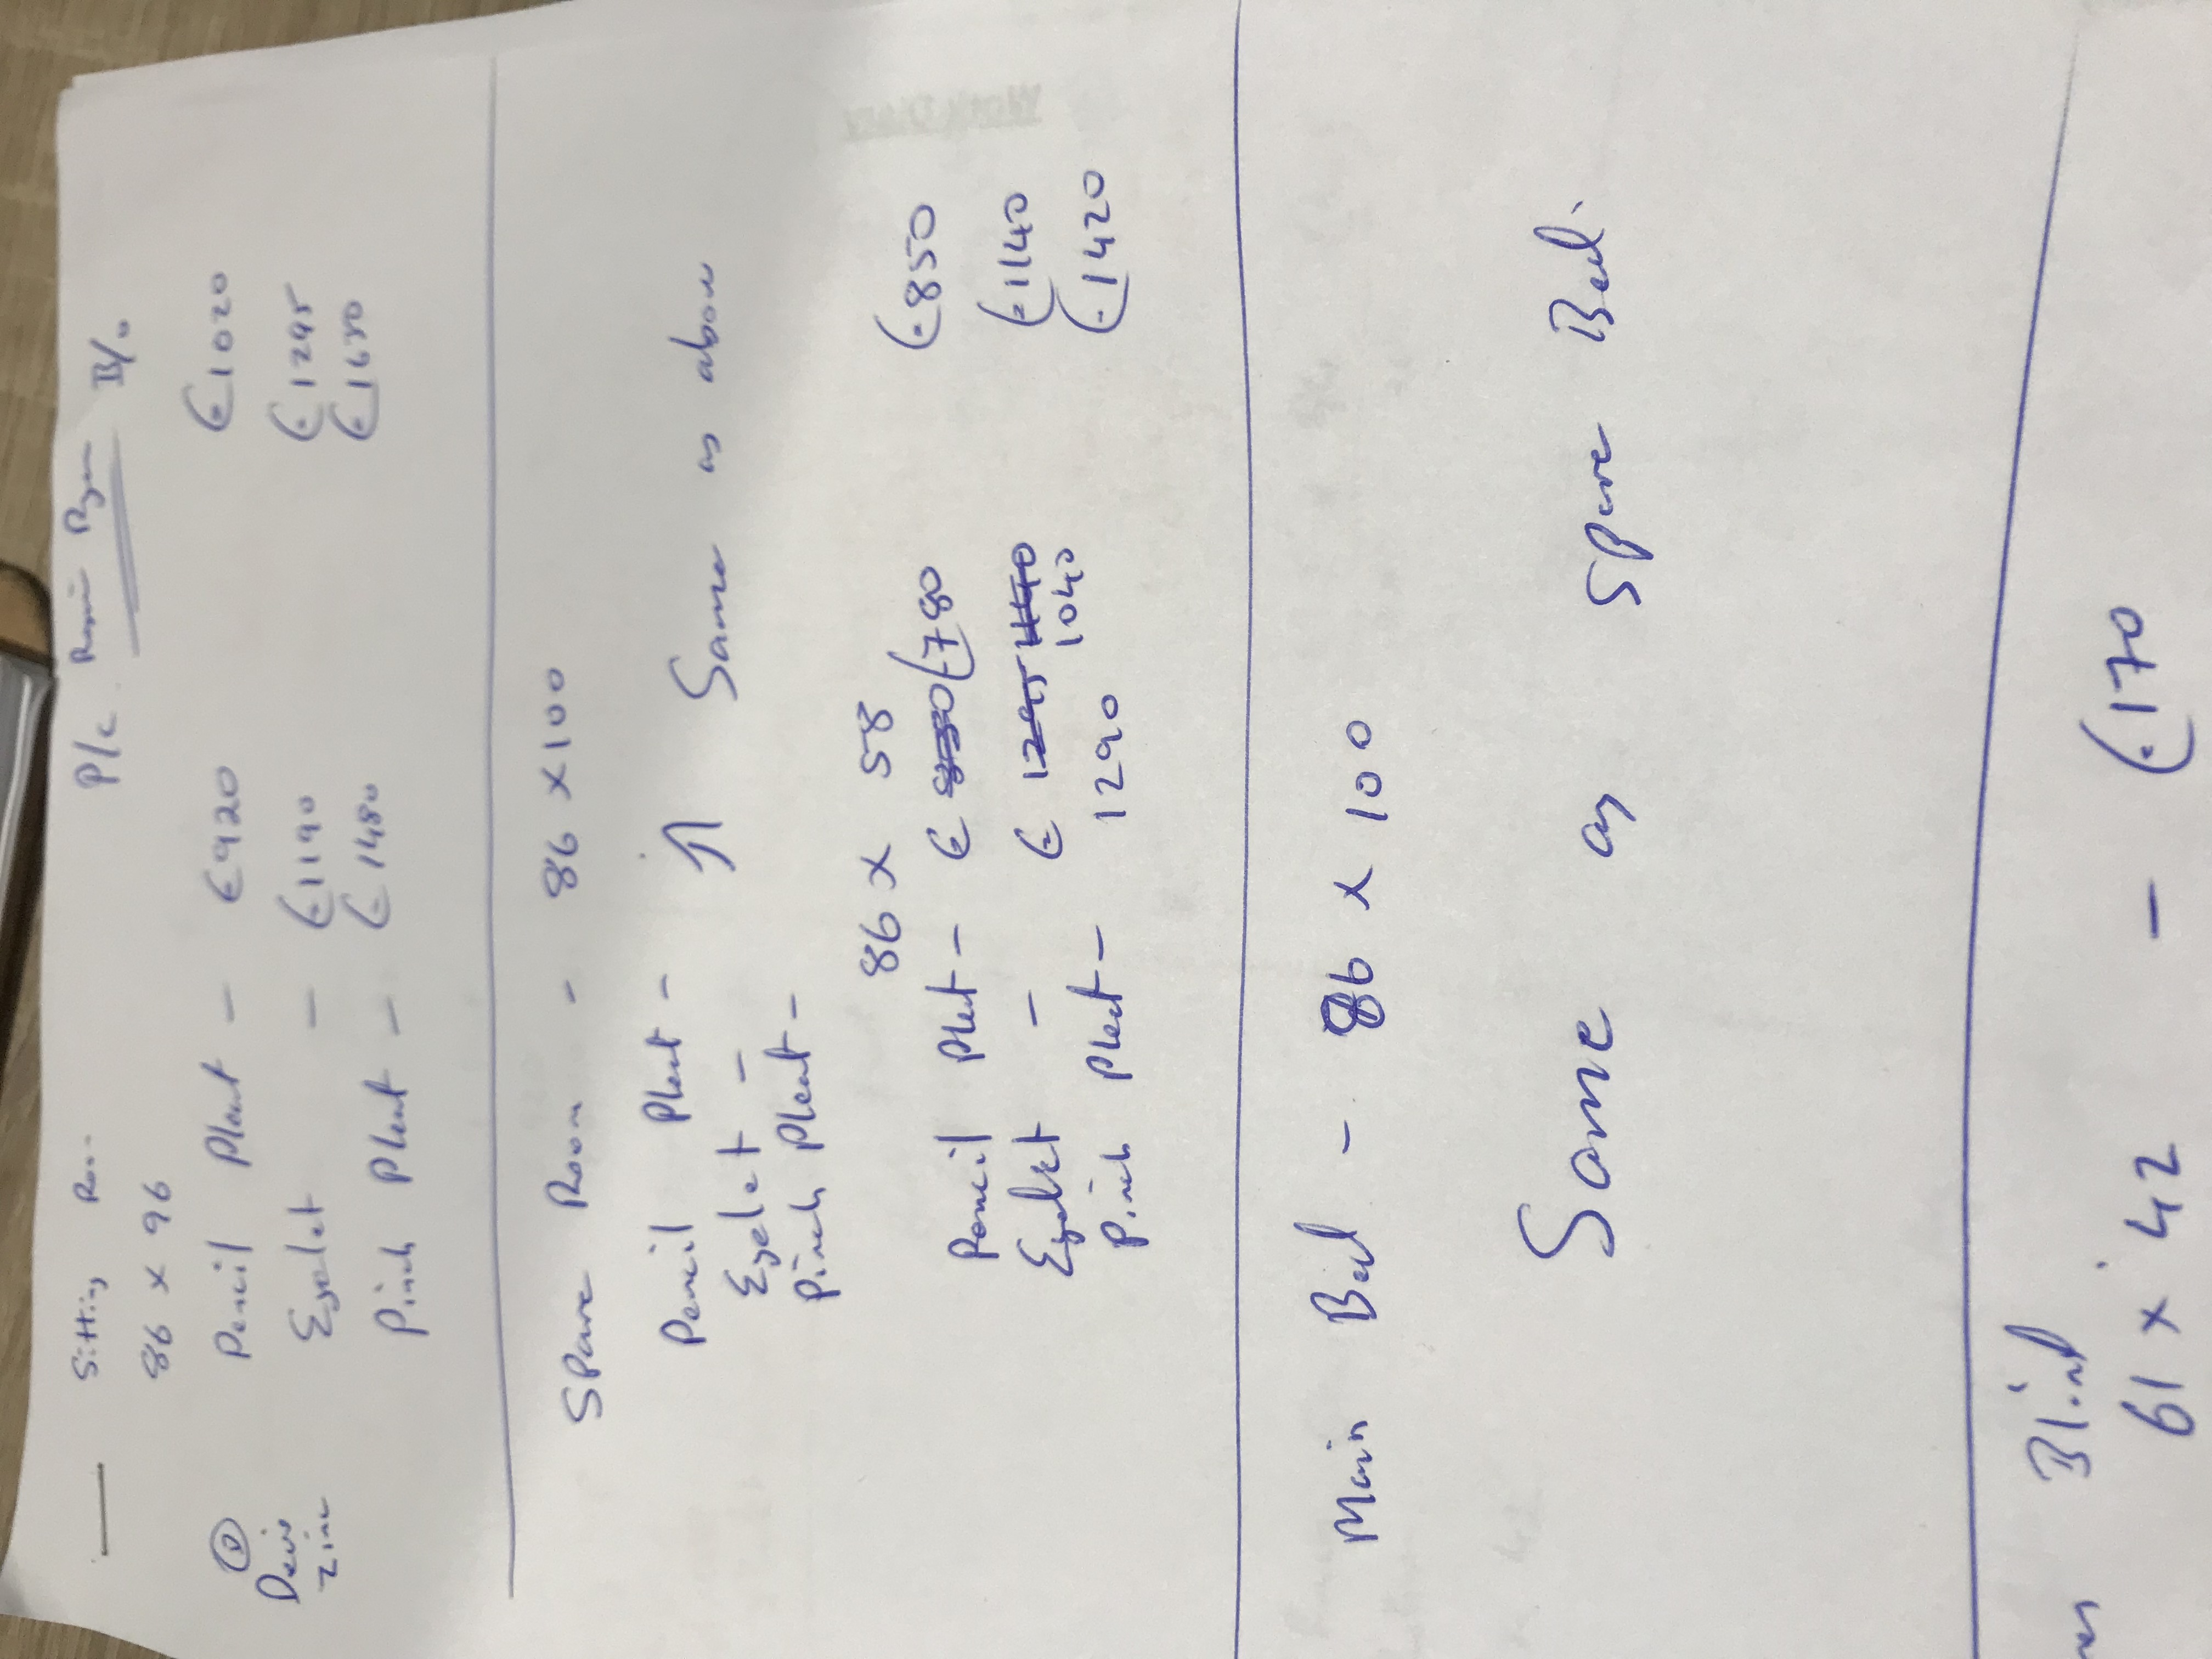 Sitting P/c B/o
86 x 96
Pencil Pleat - €920 €1020
Eyelet - €1190 €1295
Pinch Pleat - €1480 €1650
①
Devis
Zinc
Spare Room - 86 x 100
Pencil Pleat -
Eyelet - ⇑ Same as above
Pinch Pleat -
86 x 58
Pencil Plet - € 780 €850
Eyelet - € 1295 1140 1040 €1140
Pinch Pleat - 1290 €1420
Main Bed - 86 x 100
Same as Spare Bed.
Blind
61 x 42 - €170